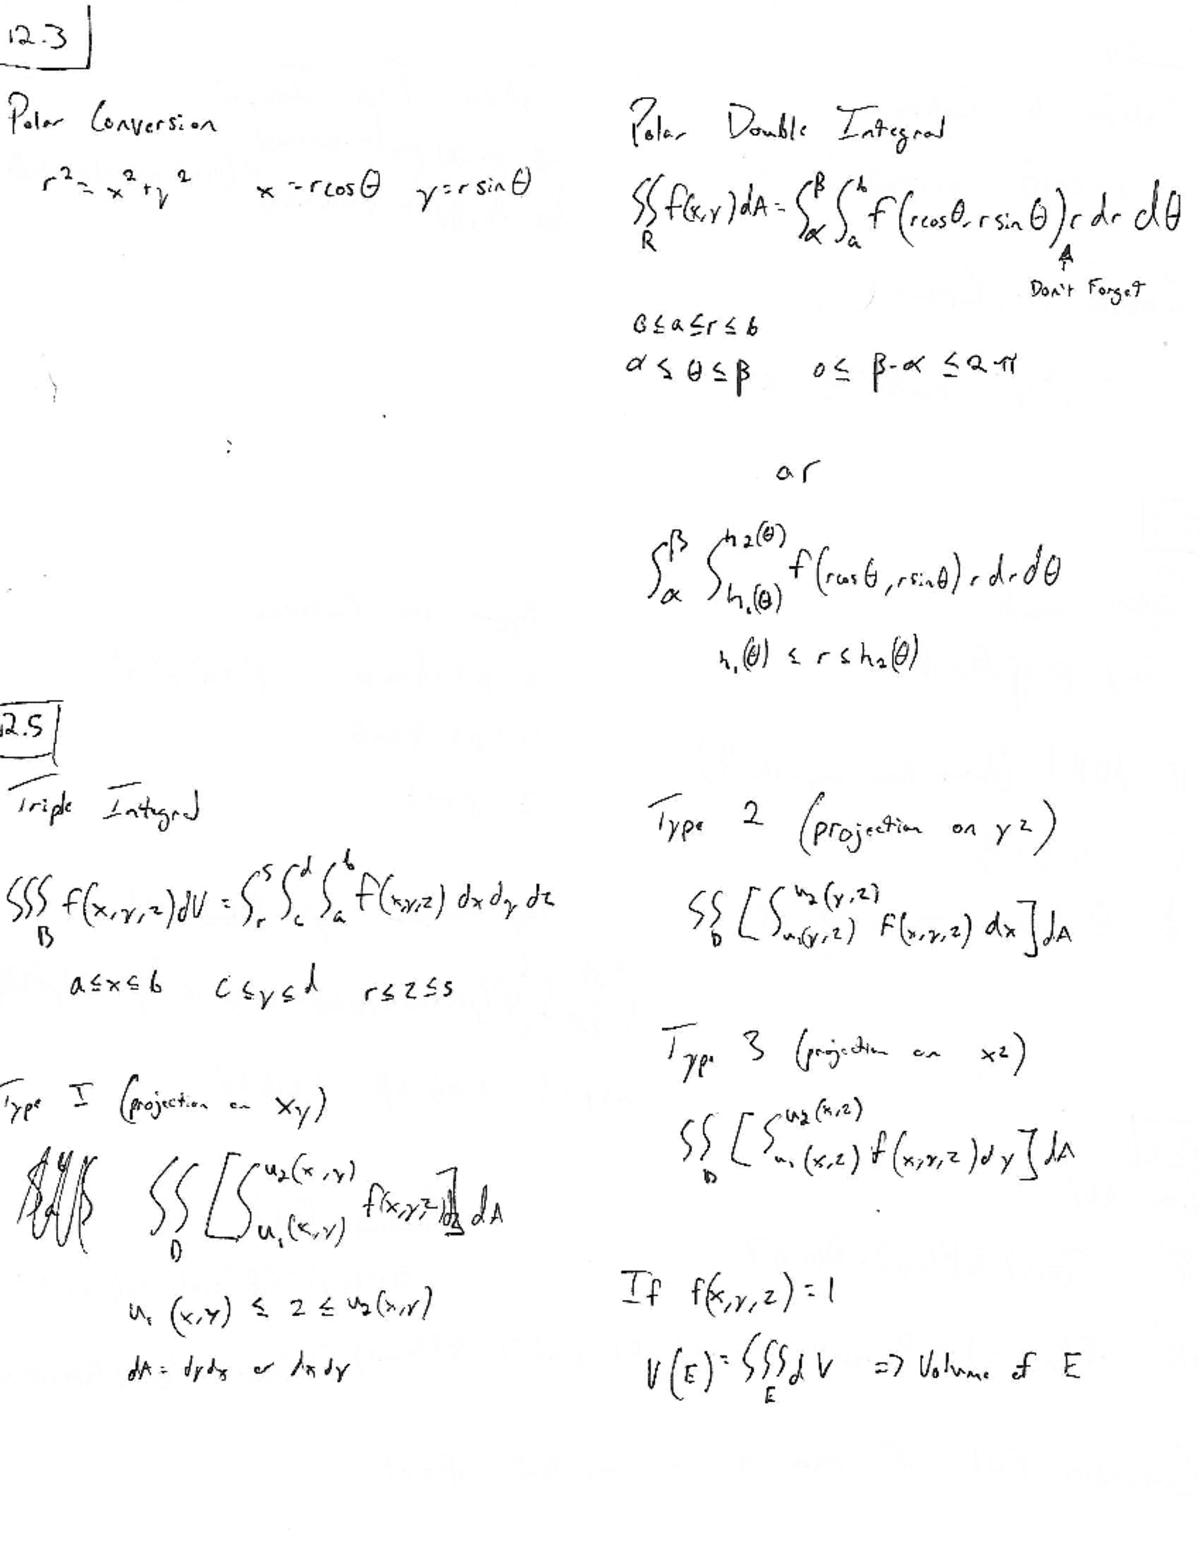 12.3
Polar Conversion
r² = x² + y² x = rcosθ y = r sinθ
Polar Double Integral
∬_R f(x,y)dA = ∫_α^β ∫_a^b f(rcosθ, r sinθ) r dr dθ
Don't Forget
0 ≤ a ≤ r ≤ b
α ≤ θ ≤ β 0 ≤ β-α ≤ 2π
or
∫_α^β ∫_{h₁(θ)}^{h₂(θ)} f(rcosθ, rsinθ) r dr dθ
h₁(θ) ≤ r ≤ h₂(θ)
12.5
Triple Integral
∭_B f(x,y,z)dV = ∫_r^s ∫_c^d ∫_a^b f(x,y,z) dx dy dz
a ≤ x ≤ b c ≤ y ≤ d r ≤ z ≤ s
Type I (projection on xy)
∬_D [∫_{u₁(x,y)}^{u₂(x,y)} f(x,y,z)dz] dA
u₁(x,y) ≤ z ≤ u₂(x,y)
dA = dydx or dxdy
Type 2 (projection on yz)
∬_D [∫_{u₁(y,z)}^{u₂(y,z)} f(x,y,z) dx] dA
Type 3 (projection on xz)
∬_D [∫_{u₁(x,z)}^{u₂(x,z)} f(x,y,z)dy] dA
If f(x,y,z) = 1
V(E) = ∭_E dV => Volume of E